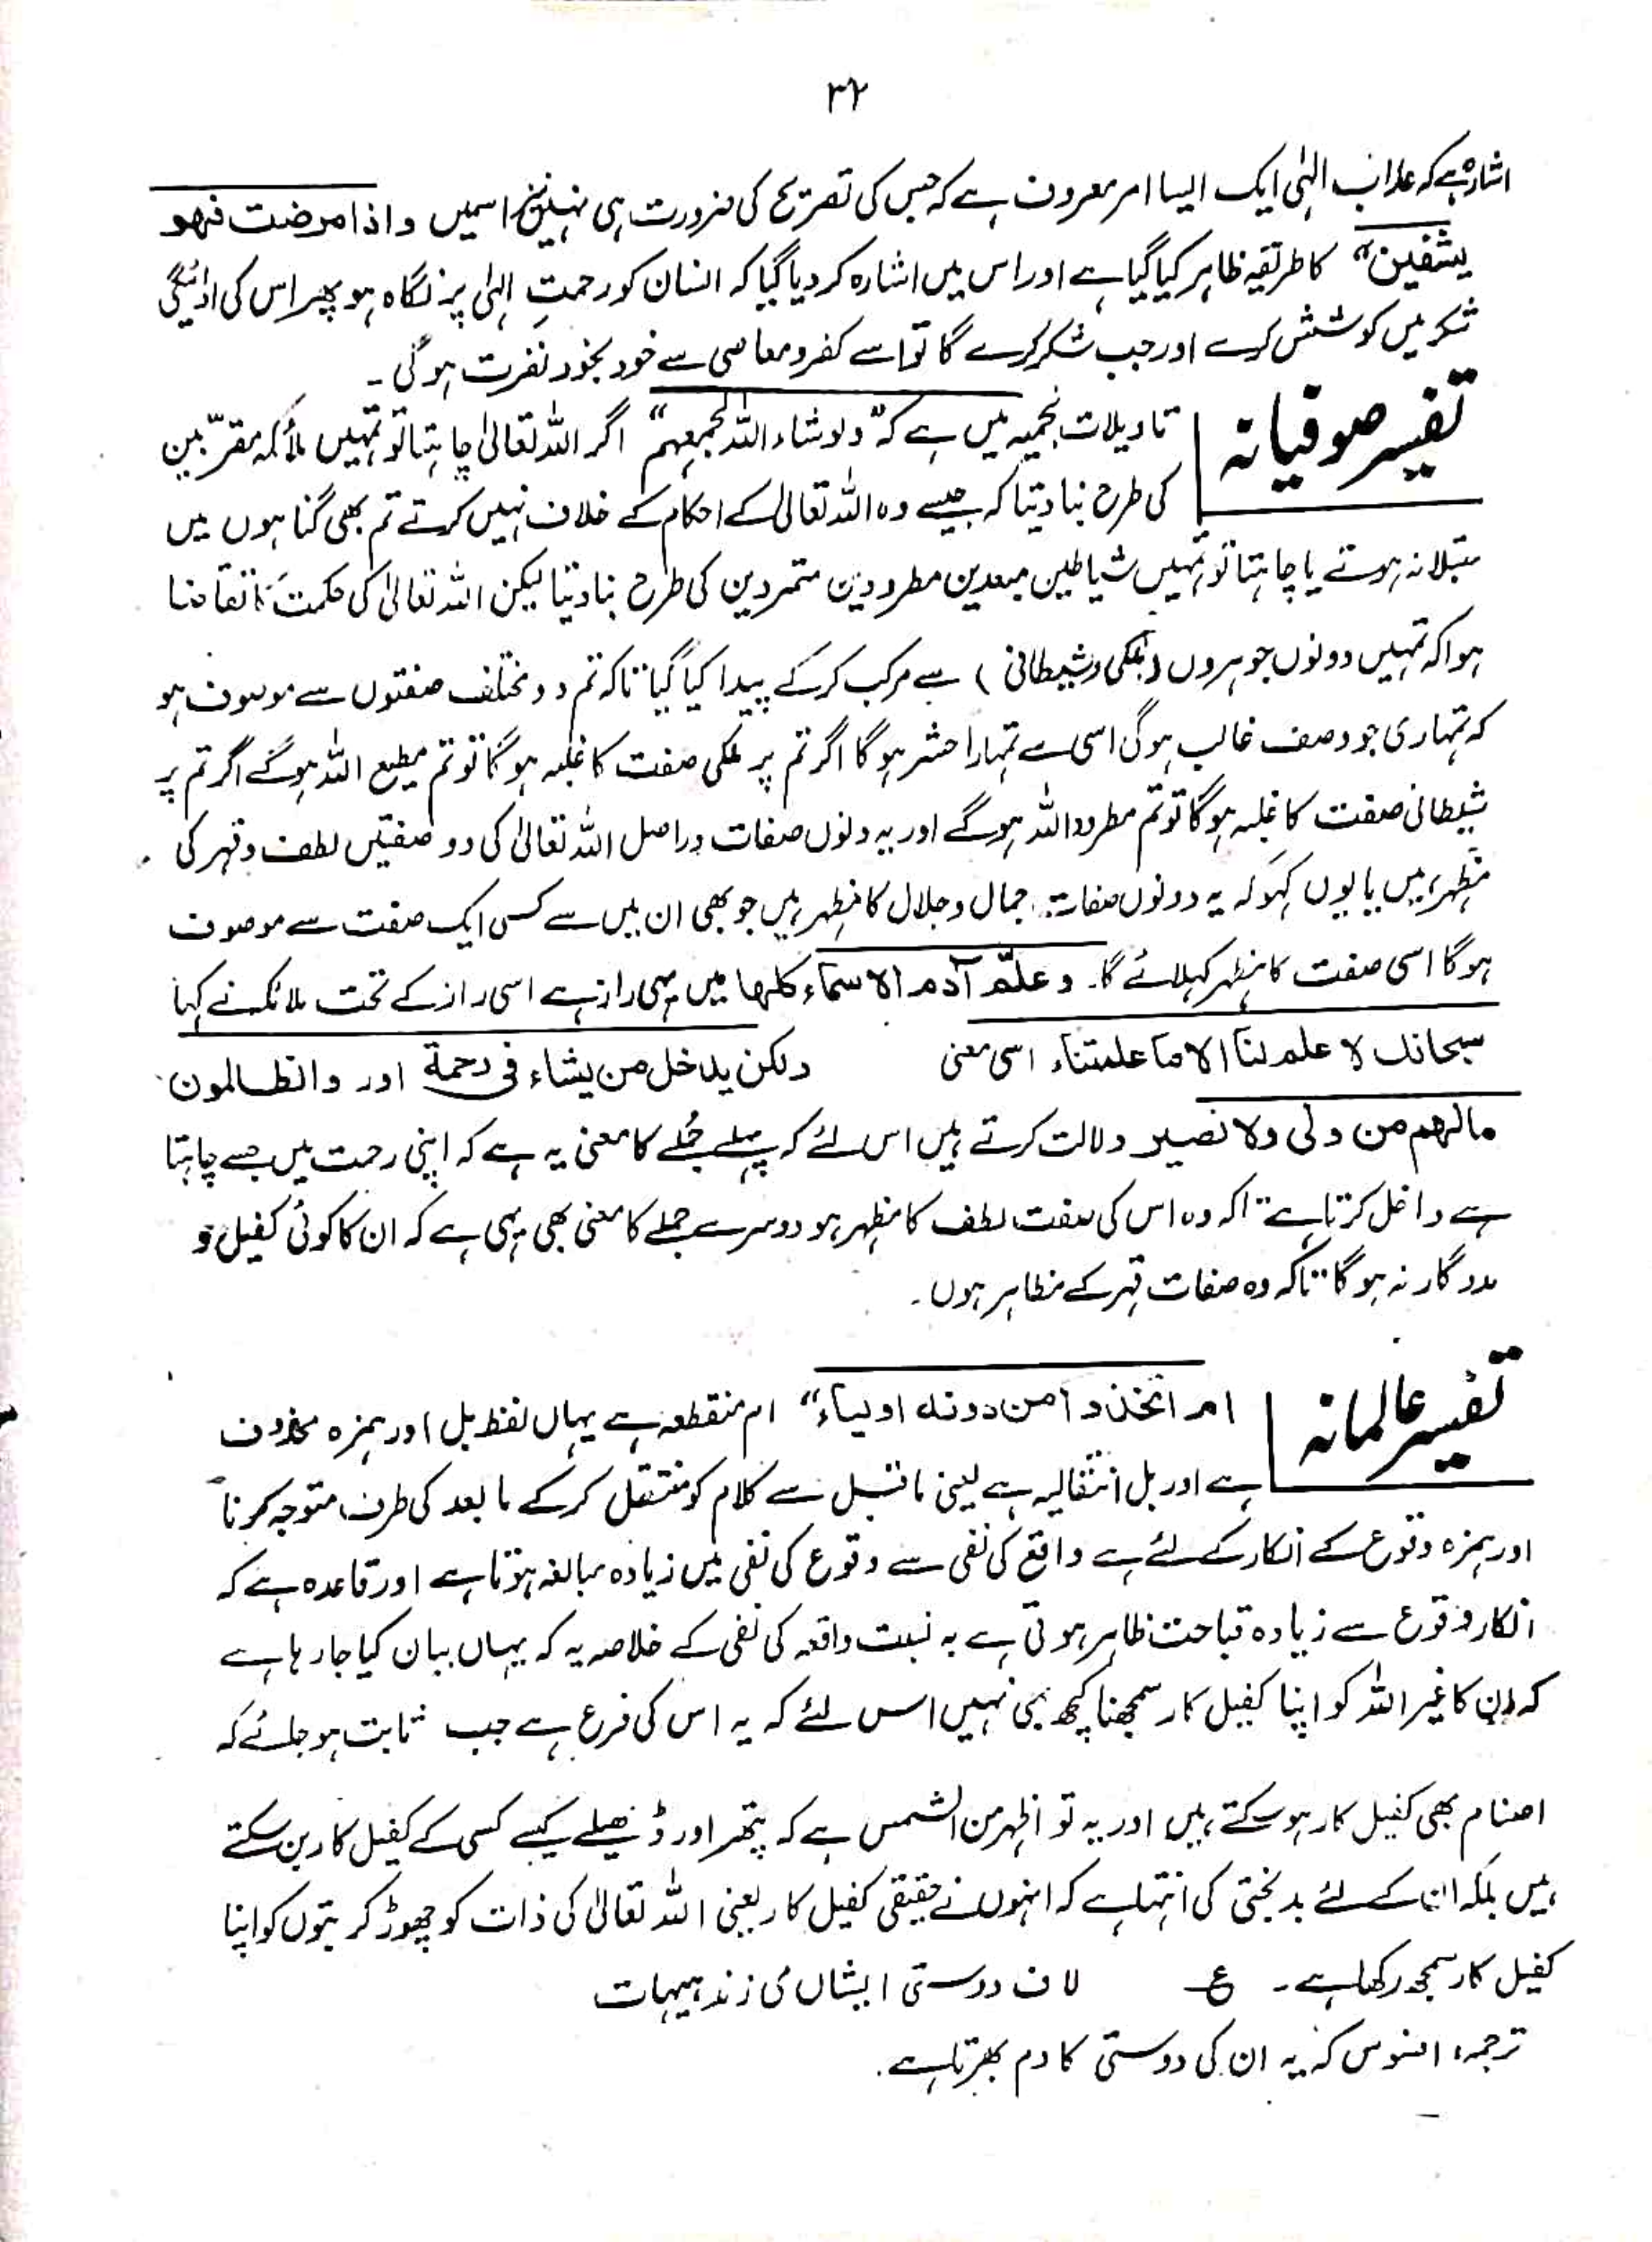 ۳۲
اشارہ ہے کہ عذاب الٰہی ایک ایسا امر معروف ہے کہ جس کی تصریح کی ضرورت ہی نہیں نیز اسمیں واذا مرضت فہو
یشفین" کا طریقہ ظاہر کیا گیا ہے اور اس میں اشارہ کر دیا گیا کہ انسان کو رحمتِ الٰہی پر نگاہ ہو پھر اس کی ادائیگی
شکر میں کوشش کرے اور جب شکر کرے گا تو اسے کفر و معاصی سے خود بخود نفرت ہو گی ۔
تفسیر صوفیانہ
تاویلات نجمیہ میں ہے کہ "ولو شاء اللہ لجمعہم" اگر اللہ تعالیٰ چاہتا تو تمہیں ملائکہ مقرّبین
کی طرح بنا دیتا کہ جیسے وہ اللہ تعالیٰ کے احکام کے خلاف نہیں کرتے تم بھی گناہوں میں
مبتلا نہ ہوتے یا چاہتا تو تمہیں شیاطین مبعدین مطرودین متمردین کی طرح بنا دیتا لیکن اللہ تعالیٰ کی حکمت کا تقاضا
ہوا کہ تمہیں دونوں جوہروں (ملکی و شیطانی) سے مرکب کر کے پیدا کیا گیا تاکہ تم دو مختلف صفتوں سے موصوف ہو
کہ تمہاری جو وصف غالب ہوگی اسی سے تمہارا حشر ہو گا اگر تم پر ملکی صفت کا غلبہ ہو گا تو تم مطیع اللہ ہوگے اگر تم پر
شیطانی صفت کا غلبہ ہو گا تو تم مطرود اللہ ہو گے اور یہ دونوں صفات دراصل اللہ تعالیٰ کی دو صفتیں لطف و قہر کی
مظہر ہیں یا یوں کہو کہ یہ دونوں صفات جمال و جلال کا مظہر ہیں جو بھی ان میں سے کسی ایک صفت سے موصوف
ہو گا اسی صفت کا مظہر کہلائے گا۔ وعلّم آدم الاسماء کلھا میں یہی راز ہے اسی راز کے تحت ملائکہ نے کہا
سبحانک لا علم لنا الا ما علمتنا، اسی معنی ولکن یدخل من یشاء فی رحمۃ اور والظالمون
مالہم من ولی ولا نصیر دلالت کرتے ہیں اس لئے کہ پہلے جُملے کا معنی یہ ہے کہ اپنی رحمت میں جسے چاہتا
ہے داخل کرتا ہے تاکہ وہ اس کی صفت لطف کا مظہر ہو دوسرے جملے کا معنی بھی یہی ہے کہ ان کا کوئی کفیل و
مددگار نہ ہو گا تاکہ وہ صفات قہر کے مظاہر ہوں۔
تفسیر عالمانہ
ام اتخذوا من دونہ اولیاء" ام منقطعہ ہے یہاں لفظ بل اور ہمزہ محذوف
ہے اور بل انتقالیہ ہے یعنی ماقبل سے کلام کو منتقل کر کے مابعد کی طرف متوجہ کرنا
اور ہمزہ وقوع کے انکار کے لئے ہے واقع کی نفی سے وقوع کی نفی میں زیادہ مبالغہ ہوتا ہے اور قاعدہ ہے کہ
انکار وقوع سے زیادہ قباحت ظاہر ہوتی ہے بہ نسبت واقعہ کی نفی کے خلاصہ یہ کہ یہاں بیان کیا جا رہا ہے
کہ ان کا غیر اللہ کو اپنا کفیل کار سمجھنا کچھ بھی نہیں اس لئے کہ یہ اس کی فرع ہے جب ثابت ہو جائے کہ
اصنام بھی کفیل کار ہو سکتے ہیں اور یہ تو اظہر من الشمس ہے کہ پتھر اور ڈھیلے کیسے کسی کے کفیل کار بن سکتے
ہیں بلکہ ان کے لئے بدبختی کی انتہا ہے کہ انہوں نے حقیقی کفیل کار یعنی اللہ تعالیٰ کی ذات کو چھوڑ کر بتوں کو اپنا
کفیل کار سمجھ رکھا ہے ۔ ع لاف دوستی ایشاں می زند ہیہات
ترجمہ: افسوس کہ یہ ان کی دوستی کا دم بھرتا ہے۔